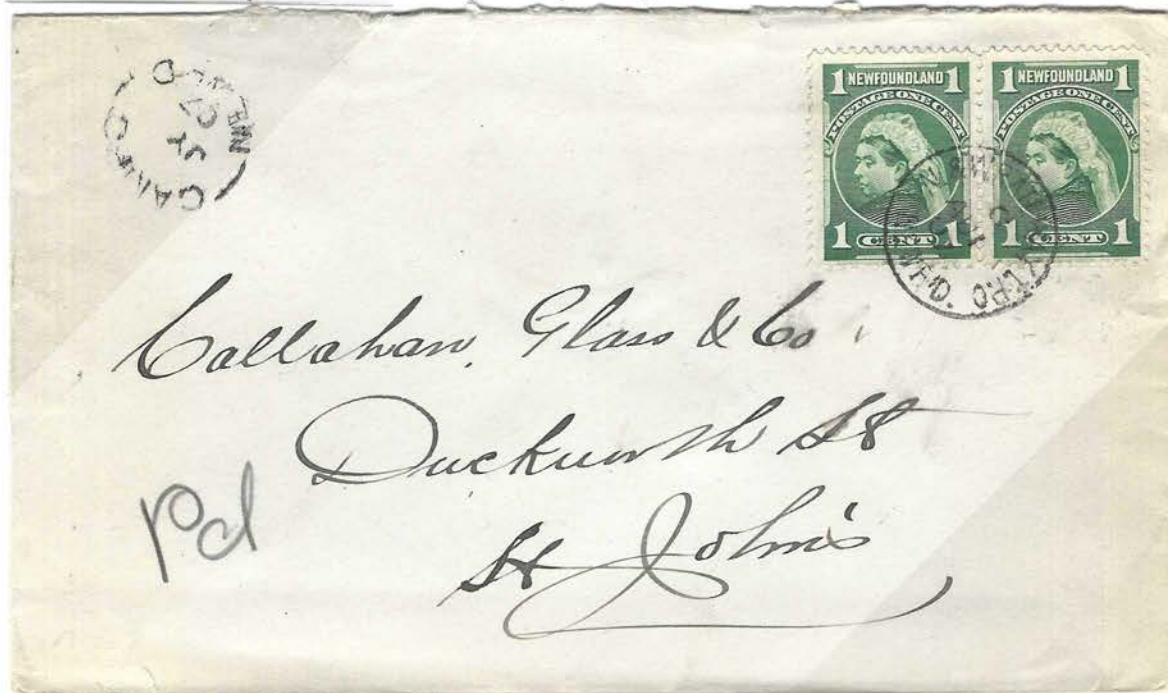 1 NEWFOUNDLAND 1
POSTAGE ONE CENT
1 CENT 1
1 NEWFOUNDLAND 1
POSTAGE ONE CENT
1 CENT 1
Callahan, Glass & Co
Duckworth St
St John's
Pd